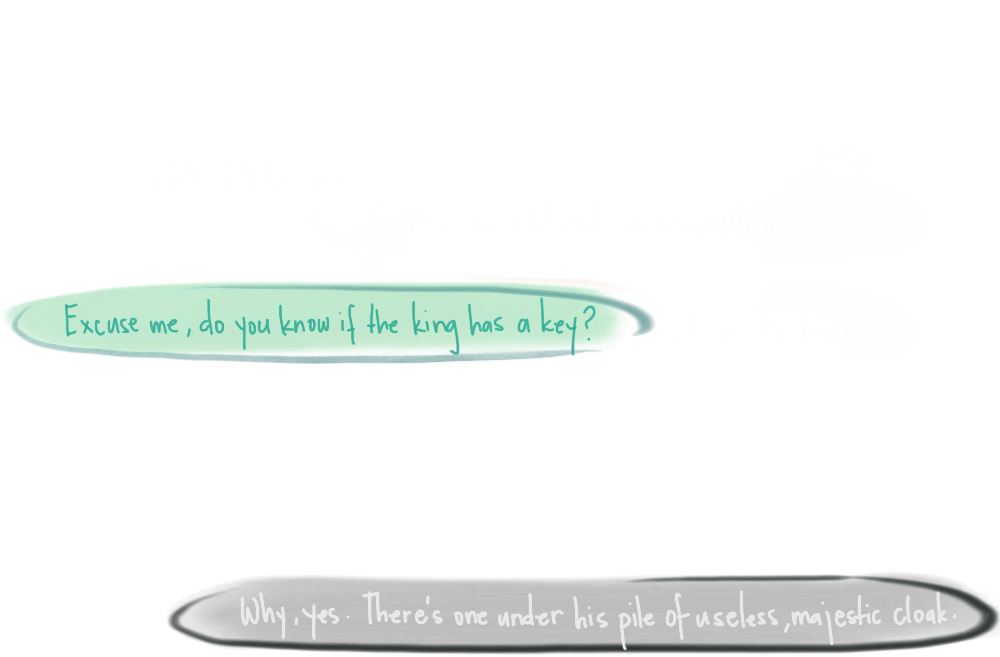 Excuse me, do you know if the king has a key?
Why, yes. There's one under his pile of useless, majestic cloak.